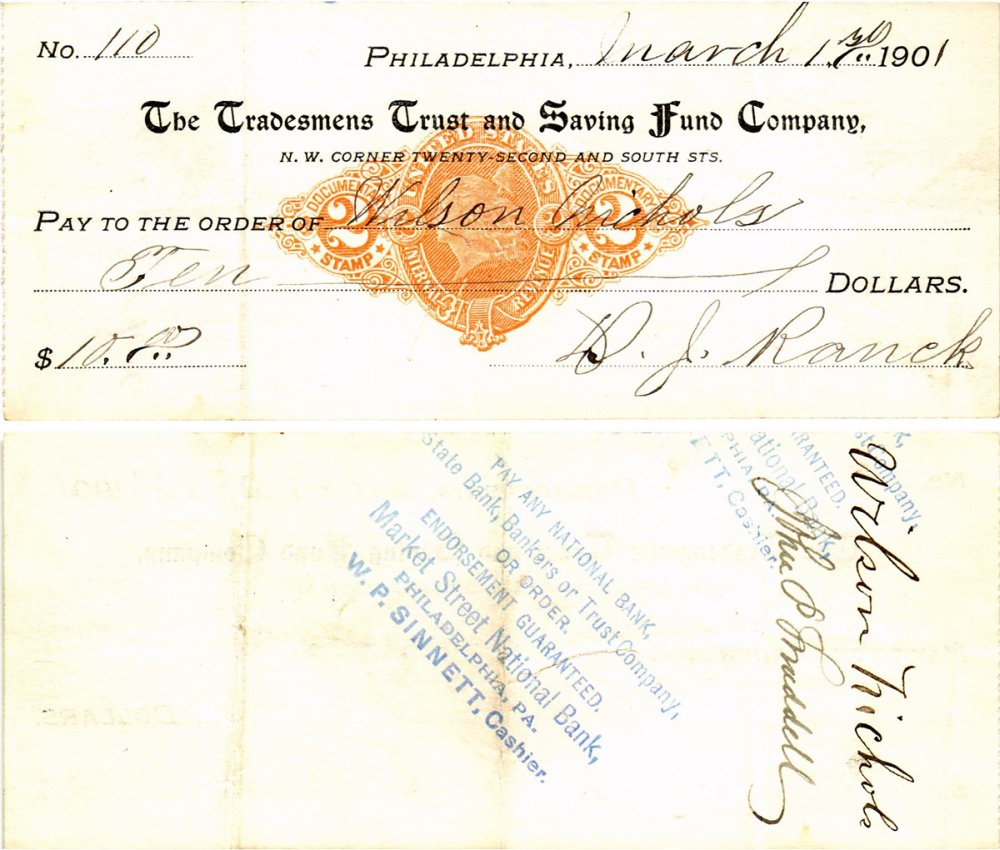 No. 110
PHILADELPHIA, March 1, 1901
The Tradesmens Trust and Saving Fund Company,
N. W. CORNER TWENTY-SECOND AND SOUTH STS.
UNITED STATES
INTERNAL REVENUE
DOCUMENTARY 2 STAMP
DOCUMENTARY 2 STAMP
PAY TO THE ORDER OF Wilson Nichols
Ten DOLLARS.
$ 10.00
D. J. Ranck
PAY ANY NATIONAL BANK,
State Bank, Bankers or Trust Company,
OR ORDER.
ENDORSEMENT GUARANTEED.
Market Street National Bank,
PHILADELPHIA, PA.
W. P. SINNETT, Cashier.
st Company,
RANTEED.
ational Bank,
PHIA, PA.
ETT, Cashier.
Wilson Nichols